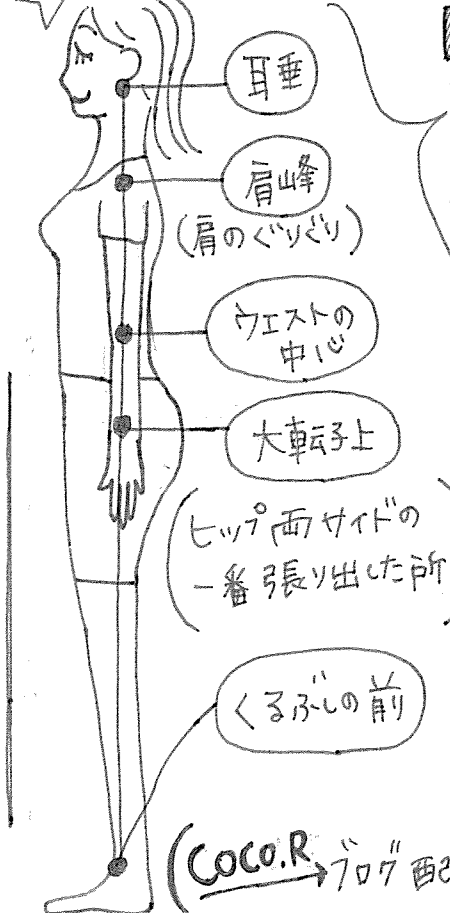 耳垂
肩峰
(肩のぐりぐり)
ウエストの
中心
大転子上
(ヒップ両サイドの
一番張り出した所
くるぶしの前
(COCO.R
→ブログ